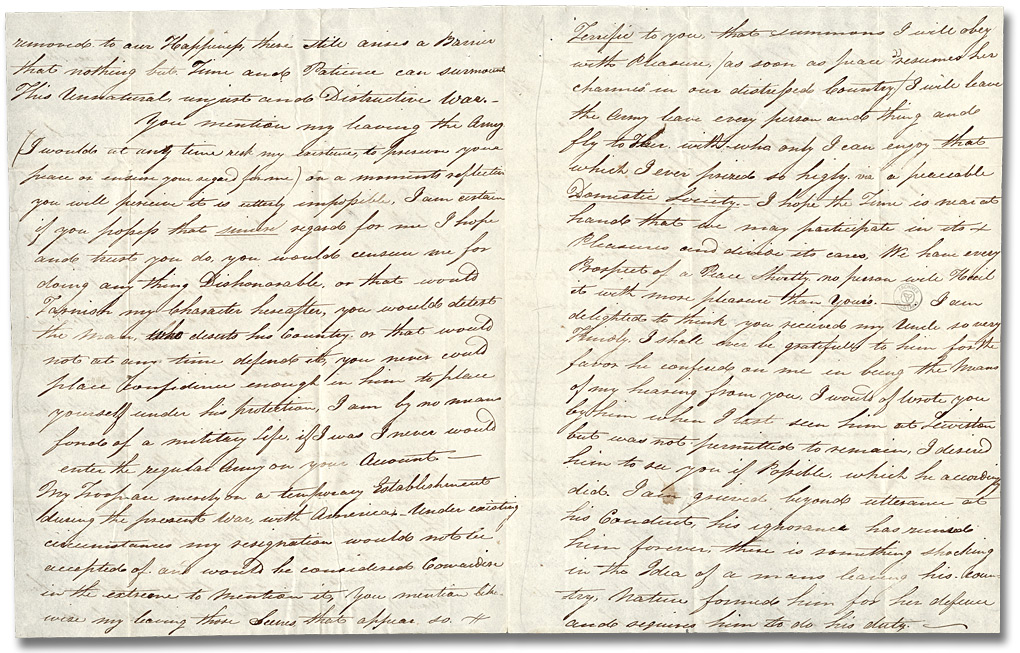 removed to our Happiness, there still arises a Barrier
that nothing but Time and Patience can surmount
This Unnatural, unjust and Distructive War. –
You mention my leaving the Army
(I would at any time risk my existence, to preserve your
peace or ensure your regard for me) on a moments reflection
you will perceive it is uttery impossible, I am certain
if you possess that sincere regard for me I hope
and trust you do, you would censure me for
doing any thing Dishonorable, or that would
Tarnish my Character hereafter, you would detest
the man, who deserts his Country or that would
not at any time defend it, you never could
place Confidence enough in him to place
yourself under his protection, I am by no means
fond of a military life, if I was I never would
enter the regular Army on your Account –
My Troop are merely on a temporary Establishment
during the present War, with America – Under existing
circumstances my resignation would not be
accepted of and would be considered Cowardise
in the extreme to Mention it, You mention like
wise my leaving those Seenes that appear so
Terrific to you, that summons I will obey
with Pleasure, (as soon as peace resumes her
charms in our distressed Country) I will leave
the Army leave every person and thing and
fly to Thee with who only I can enjoy that
which I ever prized so highly via a peaceable
Domestic Society – I hope the Time is near at
hand that we may participate in its
Pleasures and divide its cares. We have every
Prospect of a Peace Shortly, no person will Hail
it with more pleasure than Yours. I am
delighted to think you received my Uncle so very
Kindly, I shall ever be gratefull to him for the
favor he confered on me in being the Means
of my hearing from you, I would of wrote you
by him when I last seen him at Lewiston
but was not permitted to remain, I desired
him to see you if Possible, which he accordingly
did. I am grieved beyond utterance at
his Conduct, his ignorance has ruined
him forever, there is something shocking
in the Idea of a mans leaving his Coun-
try, Nature formed him for her defence
and requires him to do his duty. –